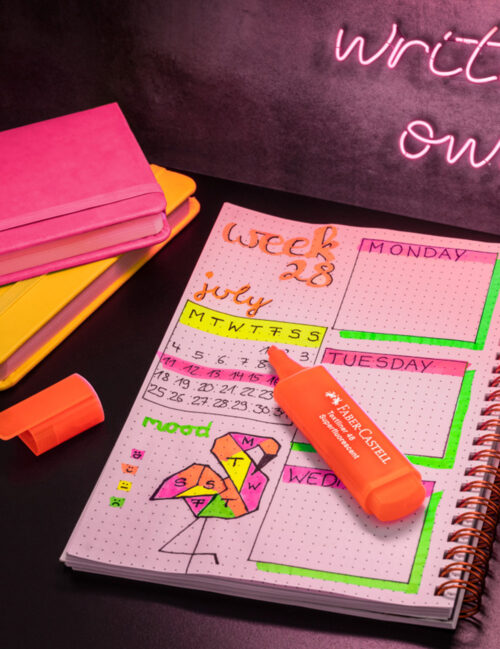 writ
ow
week
28
july
MONDAY
M T W T F S S
1 2 3
4 5 6 7 8
11 12 13 14 15 16
18 19 20 21 22 23
25 26 27 28 29 30
TUESDAY
FABER-CASTELL
Textliner 48
Superfluorescent
mood
WED
M
T
W
S S T
F